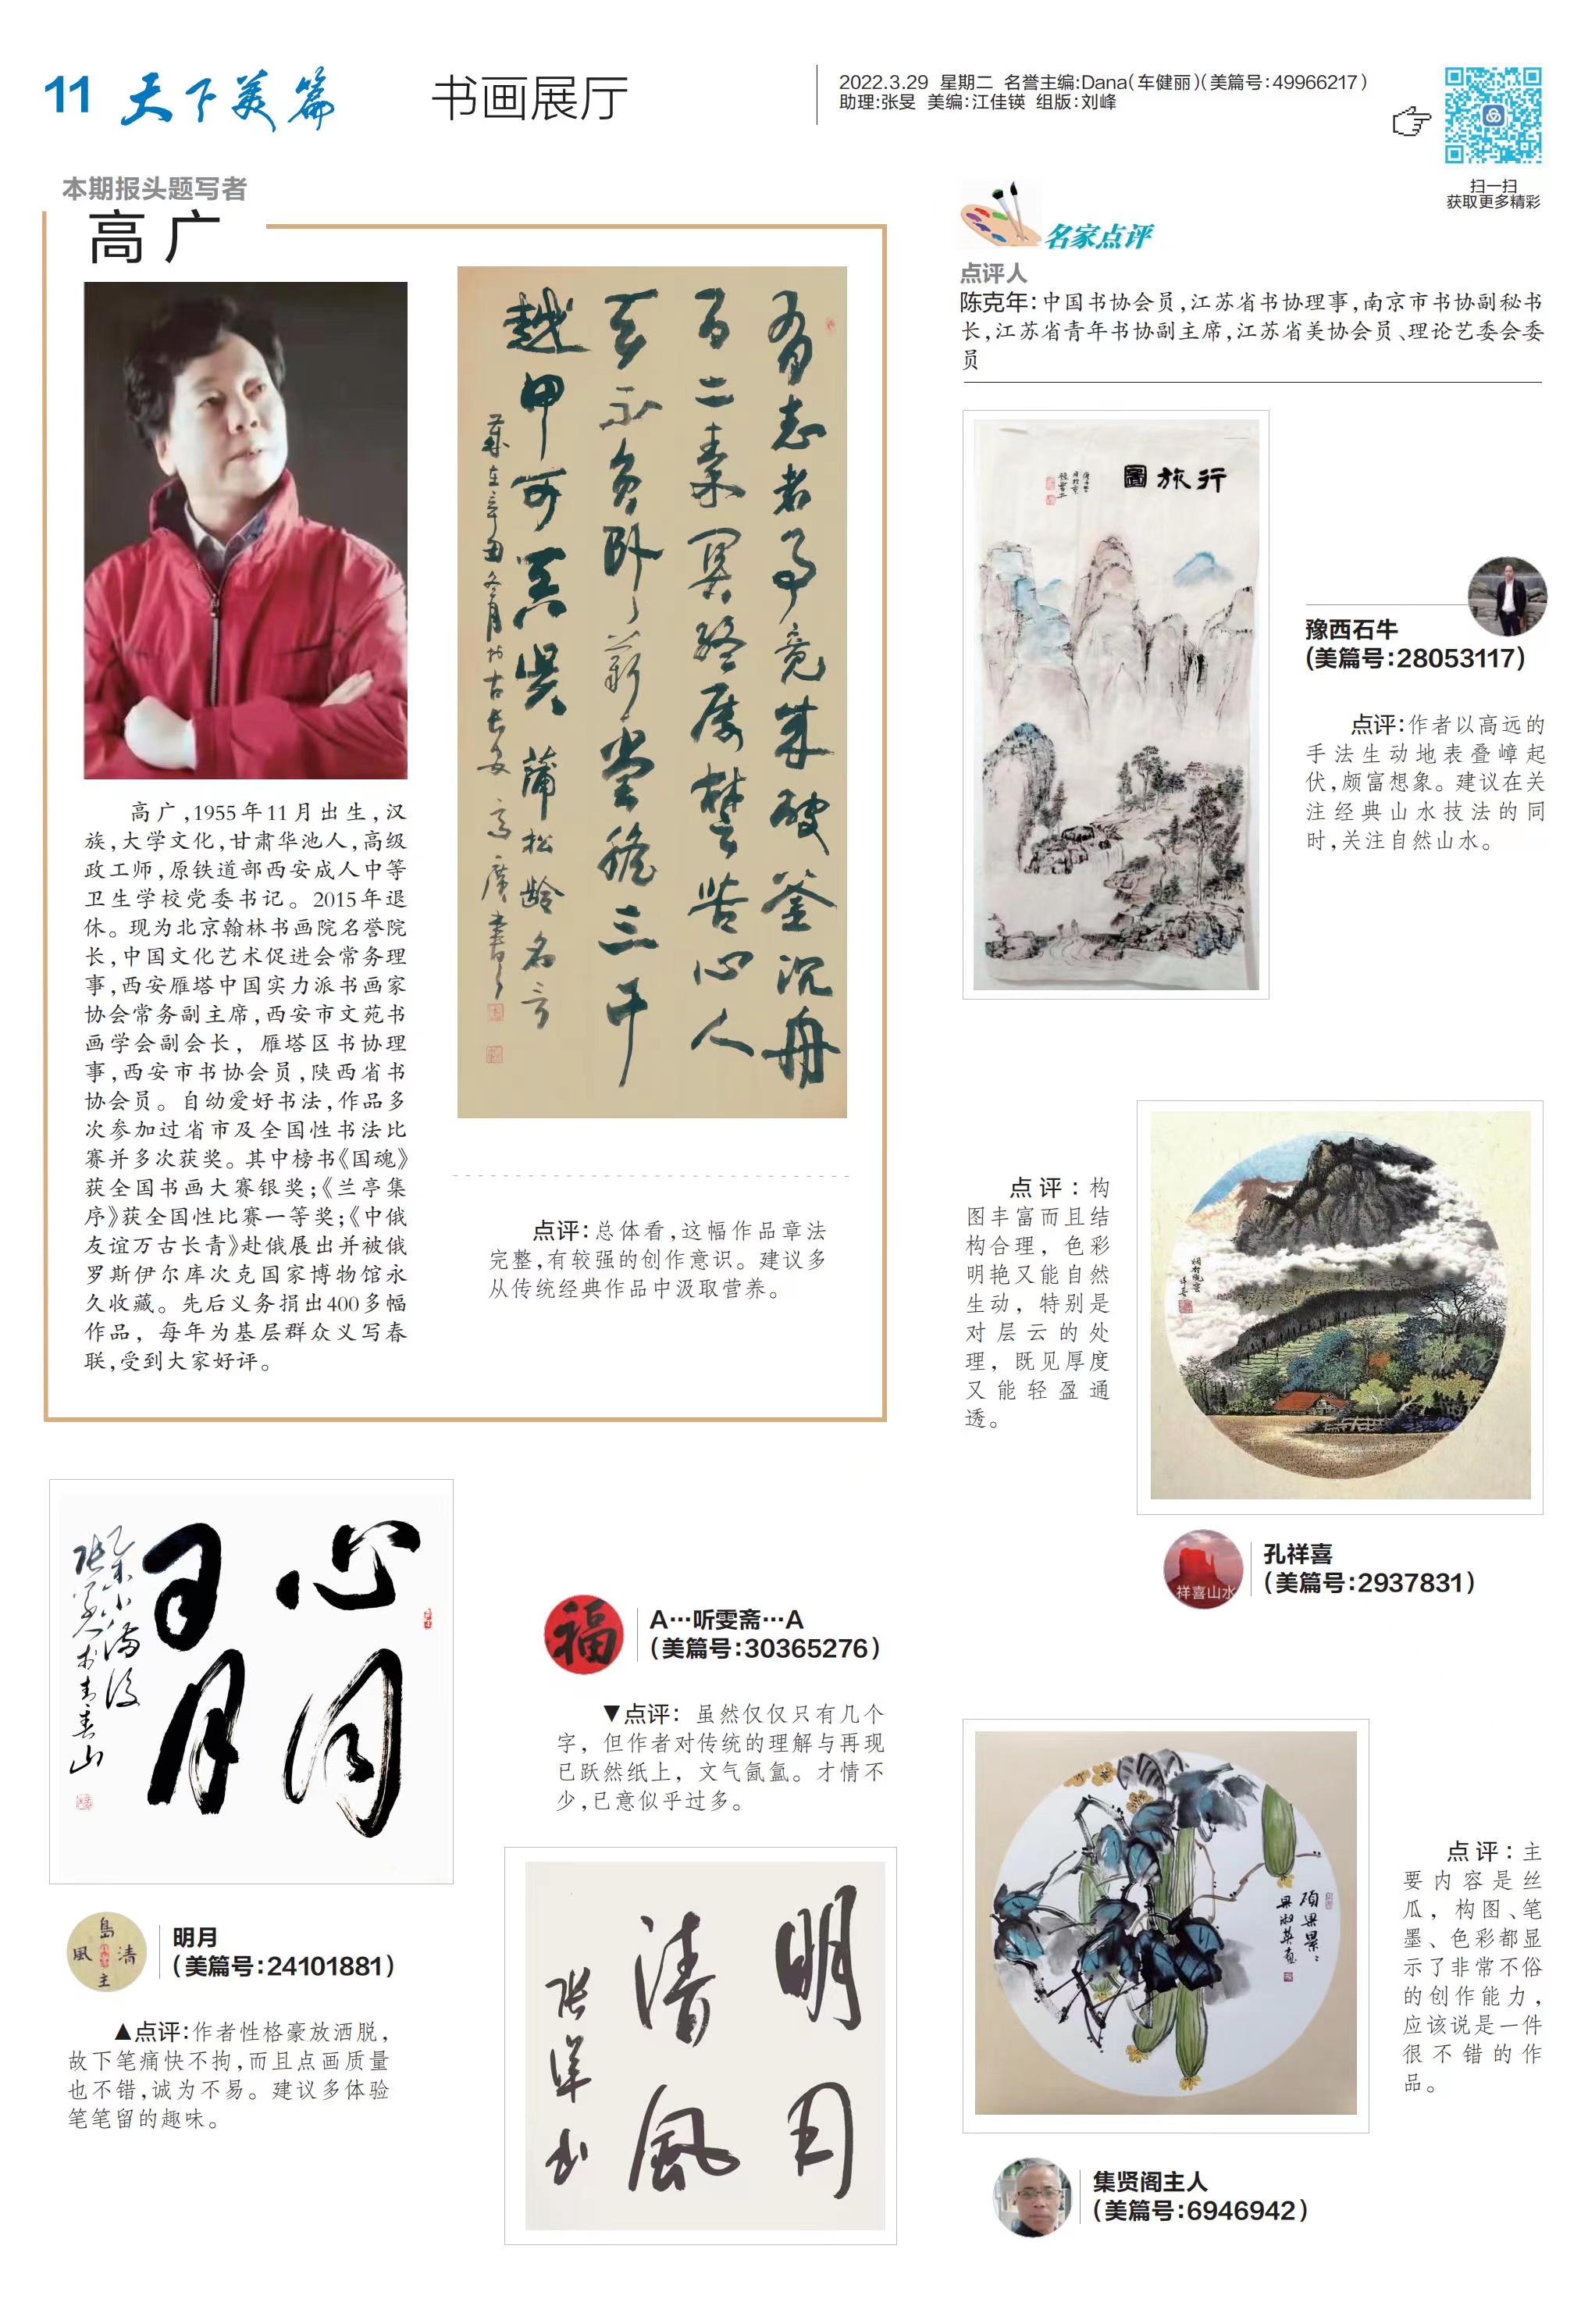 11 天下美篇
书画展厅
2022.3.29 星期二 名誉主编:Dana(车健丽)(美篇号:49966217)
助理:张旻 美编:江佳锳 组版:刘峰
扫一扫
获取更多精彩
本期报头题写者
高广
有志者事竟成破釜沉舟
百二秦关终属楚苦心人
天不负卧薪尝胆三千
越甲可吞吴 蒲松龄名言
岁在辛丑冬月于古长安 高广书
高广,1955年11月出生,汉
族,大学文化,甘肃华池人,高级
政工师,原铁道部西安成人中等
卫生学校党委书记。2015年退
休。现为北京翰林书画院名誉院
长,中国文化艺术促进会常务理
事,西安雁塔中国实力派书画家
协会常务副主席,西安市文苑书
画学会副会长,雁塔区书协理
事,西安市书协会员,陕西省书
协会员。自幼爱好书法,作品多
次参加过省市及全国性书法比
赛并多次获奖。其中榜书《国魂》
获全国书画大赛银奖;《兰亭集
序》获全国性比赛一等奖;《中俄
友谊万古长青》赴俄展出并被俄
罗斯伊尔库次克国家博物馆永
久收藏。先后义务捐出400多幅
作品,每年为基层群众义写春
联,受到大家好评。
点评:总体看,这幅作品章法
完整,有较强的创作意识。建议多
从传统经典作品中汲取营养。
名家点评
点评人
陈克年:中国书协会员,江苏省书协理事,南京市书协副秘书
长,江苏省青年书协副主席,江苏省美协会员、理论艺委会委
员
行旅圖
豫西石牛
(美篇号:28053117)
点评:作者以高远的
手法生动地表叠嶂起
伏,颇富想象。建议在关
注经典山水技法的同
时,关注自然山水。
点评:构
图丰富而且结
构合理,色彩
明艳又能自然
生动,特别是
对层云的处
理,既见厚度
又能轻盈通
透。
祥喜山水
孔祥喜
(美篇号:2937831)
心同
日月
福
A…听雯斋…A
(美篇号:30365276)
▼点评:虽然仅仅只有几个
字,但作者对传统的理解与再现
已跃然纸上,文气氤氲。才情不
少,已意似乎过多。
明月
清風
島
風 清
主
明月
(美篇号:24101881)
▲点评:作者性格豪放洒脱,
故下笔痛快不拘,而且点画质量
也不错,诚为不易。建议多体验
笔笔留的趣味。
硕果累累
点评:主
要内容是丝
瓜,构图、笔
墨、色彩都显
示了非常不俗
的创作能力,
应该说是一件
很不错的作
品。
集贤阁主人
(美篇号:6946942)